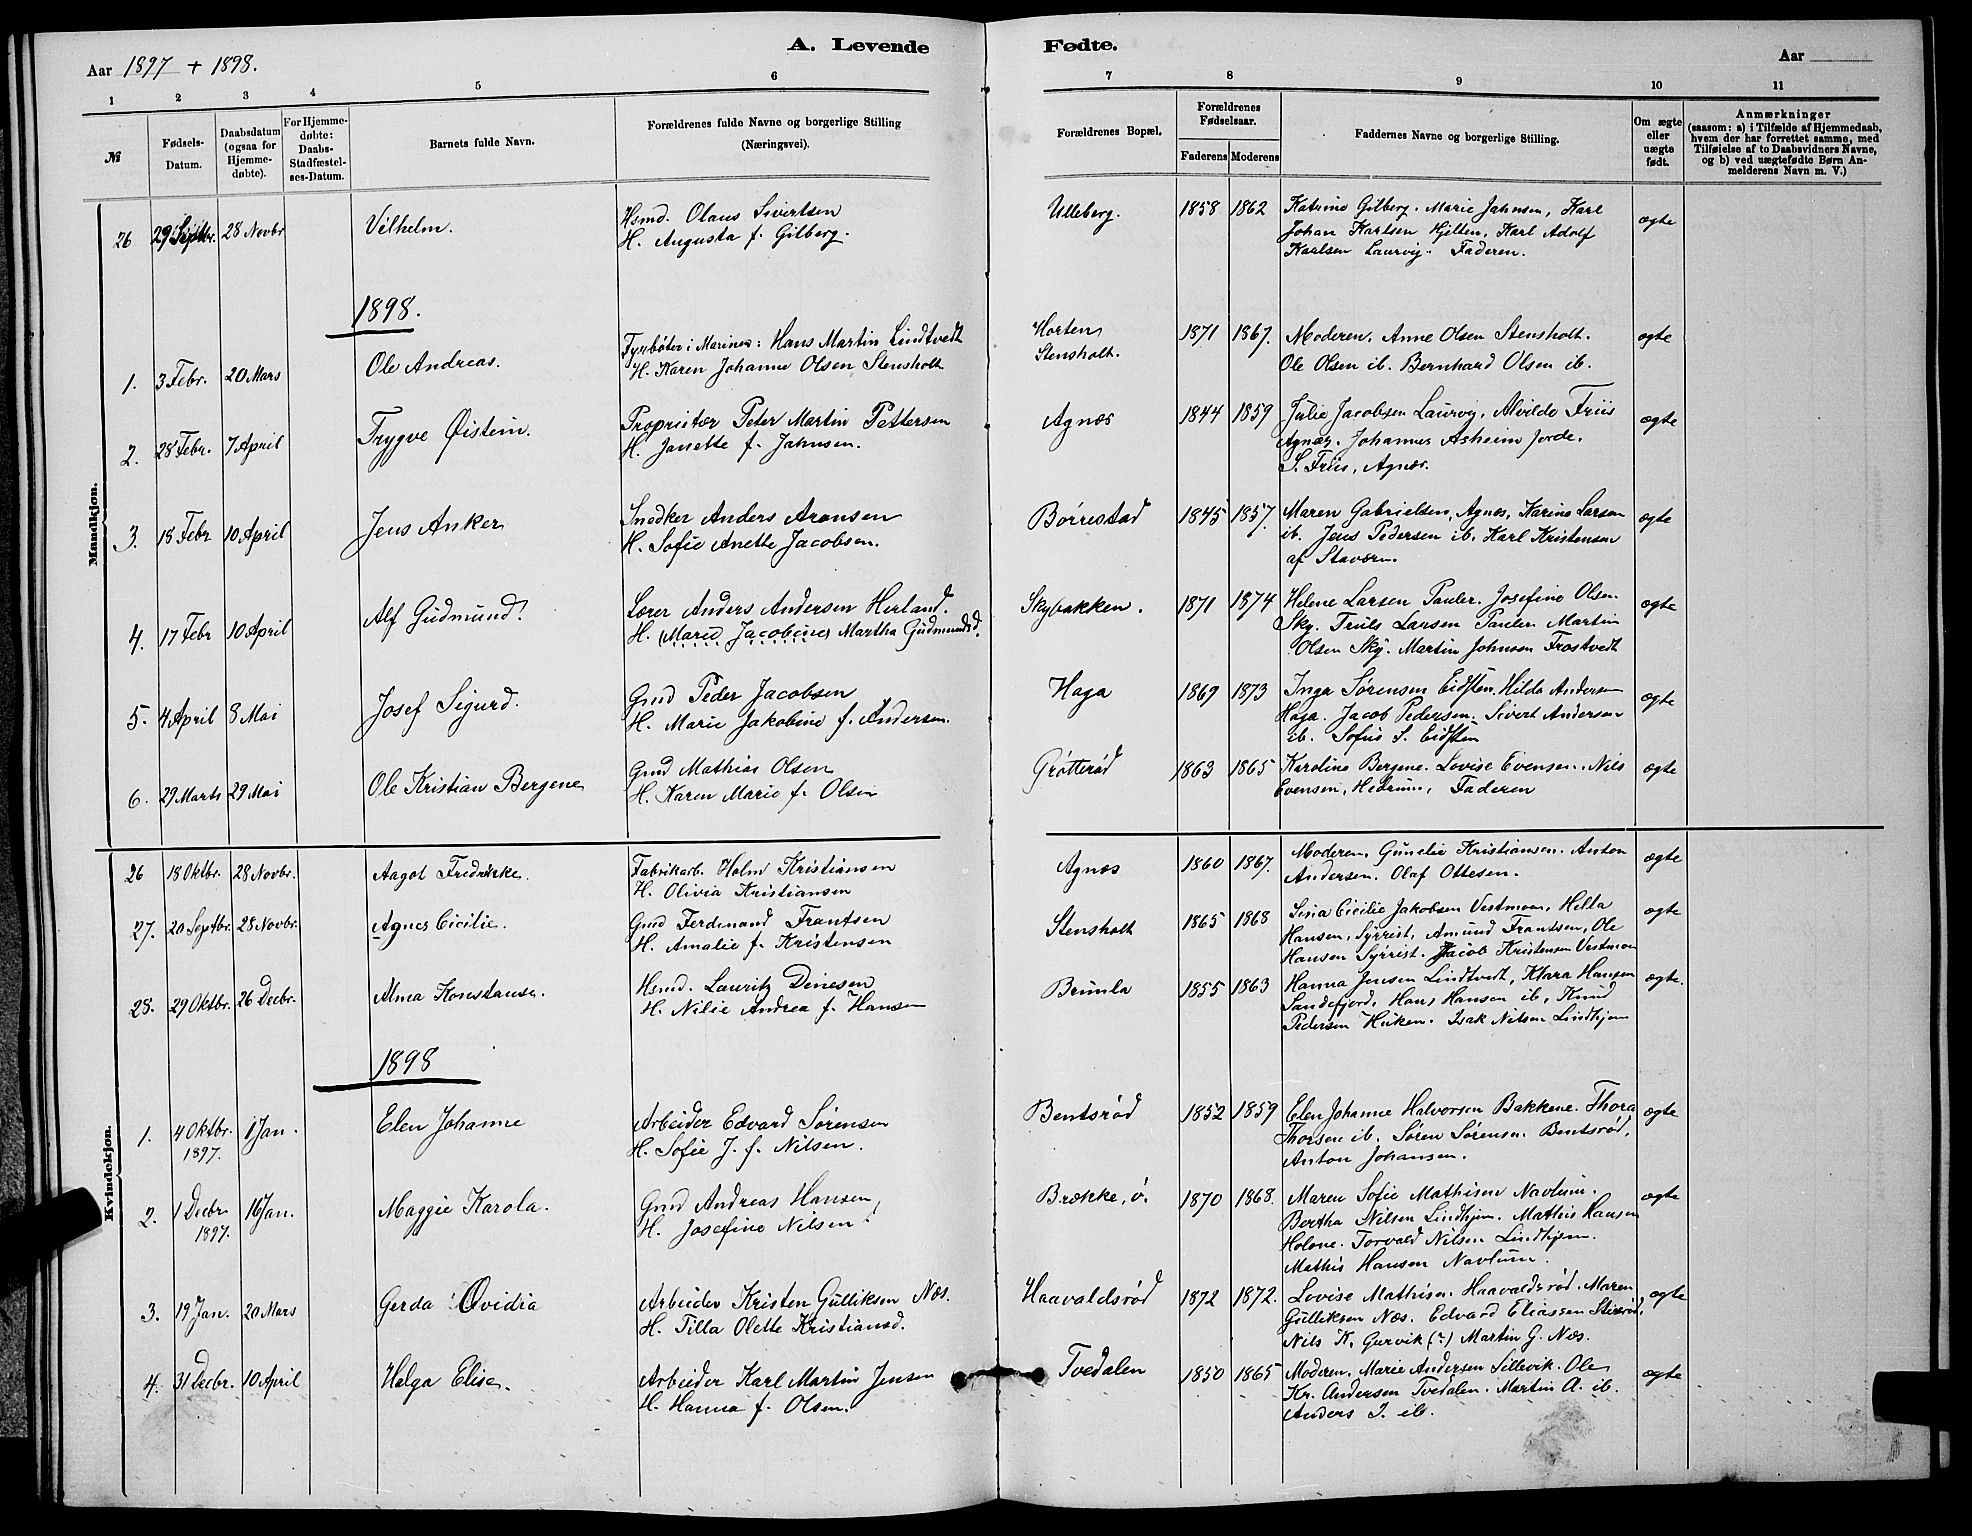 A. Levende Fødte.
Aar 1897 + 1898. Aar
1 2 3 4 5 6 7 8 9 10 11
№ Fødsels-Datum. Daabsdatum (ogsaa for Hjemme-døbte). For Hjemme-døbte: Daabs-Stadfæstel-ses-Datum. Barnets fulde Navn. Forældrenes fulde Navne og borgerlige Stilling (Næringsvei). Forældrenes Bopæl. Forældrenes Fødselsaar. Faderens Moderens Faddernes Navne og borgerlige Stilling. Om ægte eller uægte født. Anmærkninger (saasom: a) i Tilfælde af Hjemmedaab, hvem der har forrettet samme, med Tilføielse af to Daabsvidners Navne, og b) ved uægtefødte Børn An-melderens Navn m. V.)
Mandkjøn.
26 29 Septbr. 28 Novbr Vilhelm. Hsmd. Olaus Sivertsen Ulleberg. 1858 1862 Katrine Gilberg. Marie Jahnsen, Karl ægte
H. Augusta f. Gilberg. Johan Karlsen Hjelten, Karl Adolf
Karlsen Laurvig. Faderen.
1898.
1. 3 Febr. 20 Mars Ole Andreas. Fyrbøter i Marinen: Hans Martin Lindtvedt Horten 1871 1867. Moderen. Anne Olsen Stensholt. ægte
H. Karen Johanne Olsen Stensholt Stensholt. Ole Olsen ib. Bernhard Olsen ib.
2. 28 Febr. 7 April Trygve Øistein. Proprietær Peter Martin Pettersen Agnæs 1844 1859 Julie Jacobsen Laurvig, Alvilde Friis ægte
H. Janette f. Jahnsen. Agnæs. Johannes Asheim Jorde.
S. Friis, Agnæs.
3. 18 Febr 10 April Jens Anker Snedker Anders Aronsen Børrestad 1845 1857. Maren Gabrielsen, Agnes, Karine Larsen ægte
H. Sofie Anette Jacobsen. ib. Jens Pedersen ib. Karl Kristensen
af Stavern.
4. 17 Febr 10 April Alf Gudmund. Lærer Anders Andersen Herland. Skybakken. 1871 1874 Helene Larsen Pauler. Josefine Olsen ægte
H. (Marie Jacobine) Martha Gudmundsd. Sky. Truls Larsen Pauler. Martin
Olsen Sky. Martin Johnsen Frostvedt
5. 4 April 8 Mai Josef Sigurd. Gmd Peder Jacobsen Haga 1869 1873 Inga Sørensen Eidsten, Hilda Andersen ægte
H. Marie Jakobine f. Andersen. Haga. Jacob Pedersen. Sivert Andersen
ib. Sofus S. Eidsten
6. 29 Marts 29 Mai Ole Kristian Bergene Gmd Mathias Olsen Grøtterød 1863 1865 Karoline Bergene. Lovise Evensen. Nils ægte
H. Karen Marie f. Olsen Evensen, Hedrum, Faderen
Kvindekjøn.
26 18 Oktbr. 28 Novbr. Aagot Fredrikke. Fabrikarb. Holm Kristiansen Agnæs 1860 1867. Moderen, Gunelie Kristiansen. Anton ægte
H. Olivia Kristiansen Andersen. Olaf Ottesen.
27. 20 Septbr. 28 Novbr. Agnes Cicilie. Gmd Ferdinand Frantsen Stensholt 1865 1868 Sina Cicilie Jakobsen Vestmoen, Hella ægte
H. Amalie f. Kristensen Hansen, Syrrist, Amund Frantsen, Ole
Hansen Syrrist. Jacob Kristensen Vestmoen
28. 29 Oktbr. 26 Decbr. Alma Konstanse. Hsmd. Lauritz Dinesen Brunla 1855 1863 Hanna Jensen Lindtvedt, Klara Hansen ægte.
H. Nilie Andrea f. Hansen Sandefjord, Hans Hansen ib, Knud
Pedersen Huken. Isak Nilsen Lindhjem
1898
1. 4 Oktbr. 1897. 1 Jan. Elen Johanne Arbeider Edvard Sørensen Bentsrød 1852 1859 Elen Johanne Halvorsen Bakkene. Thora ægte
H. Sofie J. f. Nilsen. Thorsen ib. Søren Sørensen Bentsrød,
Anton Johansen.
2. 1 Decbr. 1897. 16 Jan. Maggie Karola. Gmd Andreas Hansen Brække, ø. 1870 1868. Maren Sofie Mathisen Navlum. ægte
H. Josefine Nilsen Bertha Nilsen Lindhjem. Mathis Hansen
Holone. Torvald Nilsen Lindhjem.
Mathis Hansen Navlum.
3. 19 Jan. 20 Mars Gerda Ovidia Arbeider Kristen Gulliksen Næs. Haavaldsrød 1872 1872. Lovise Mathisen Haavaldsrød. Maren ægte
H. Tilla Olette Kristiansd. Gulliksen Næs. Edvard Eliassen
Nils K. Gurvik (?) Martin G. Næs.
4. 31 Decbr. 10 April Helga Elise. Arbeider Karl Martin Jensen Tvedalen 1850 1865 Moderen. Marie Andersen Sillevik. Ole ægte
H. Hanna f. Olsen. Kr. Andersen Tvedalen. Martin A. ib.
Anders J. ib.